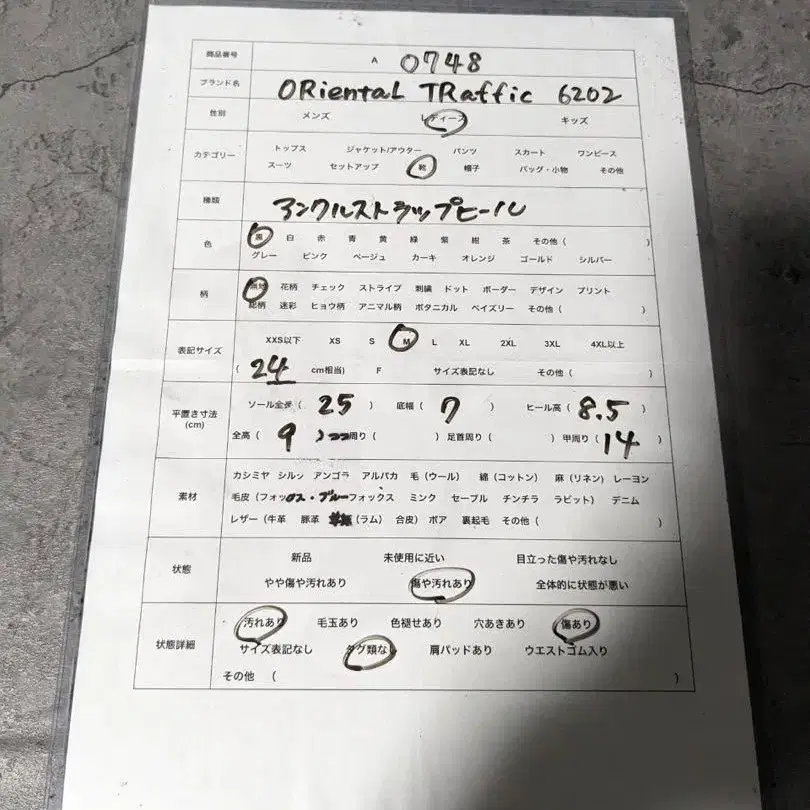 商品番号 A 0748
ブランド名 ORiental TRaffic 6202
性別 メンズ レディース キッズ
カテゴリー トップス ジャケット/アウター パンツ スカート ワンピース
スーツ セットアップ 靴 帽子 バッグ・小物 その他
種類 アンクルストラップヒール
色 黒 白 赤 青 黄 緑 紫 紺 茶 その他 ( )
グレー ピンク ベージュ カーキ オレンジ ゴールド シルバー
柄 無地 花柄 チェック ストライプ 刺繍 ドット ボーダー デザイン プリント
総柄 迷彩 ヒョウ柄 アニマル柄 ボタニカル ペイズリー その他 ( )
表記サイズ XXS以下 XS S M L XL 2XL 3XL 4XL以上
( 24 cm相当) F サイズ表記なし その他 ( )
平置き寸法 (cm) ソール全長 ( 25 ) 底幅 ( 7 ) ヒール高 ( 8.5 )
全高 ( 9 ) 周り ( ) 足首周り ( ) 甲周り ( 14 )
素材 カシミヤ シルク アンゴラ アルパカ 毛 (ウール) 綿 (コットン) 麻 (リネン) レーヨン
毛皮 (フォックス・ブルーフォックス ミンク セーブル チンチラ ラビット) デニム
レザー (牛革 豚革 (ラム) 合皮) ボア 裏起毛 その他 ( )
状態 新品 未使用に近い 目立った傷や汚れなし
やや傷や汚れあり 傷や汚れあり 全体的に状態が悪い
状態詳細 汚れあり 毛玉あり 色褪せあり 穴あきあり 傷あり
サイズ表記なし タグ類なし 肩パッドあり ウエストゴム入り
その他 ( )